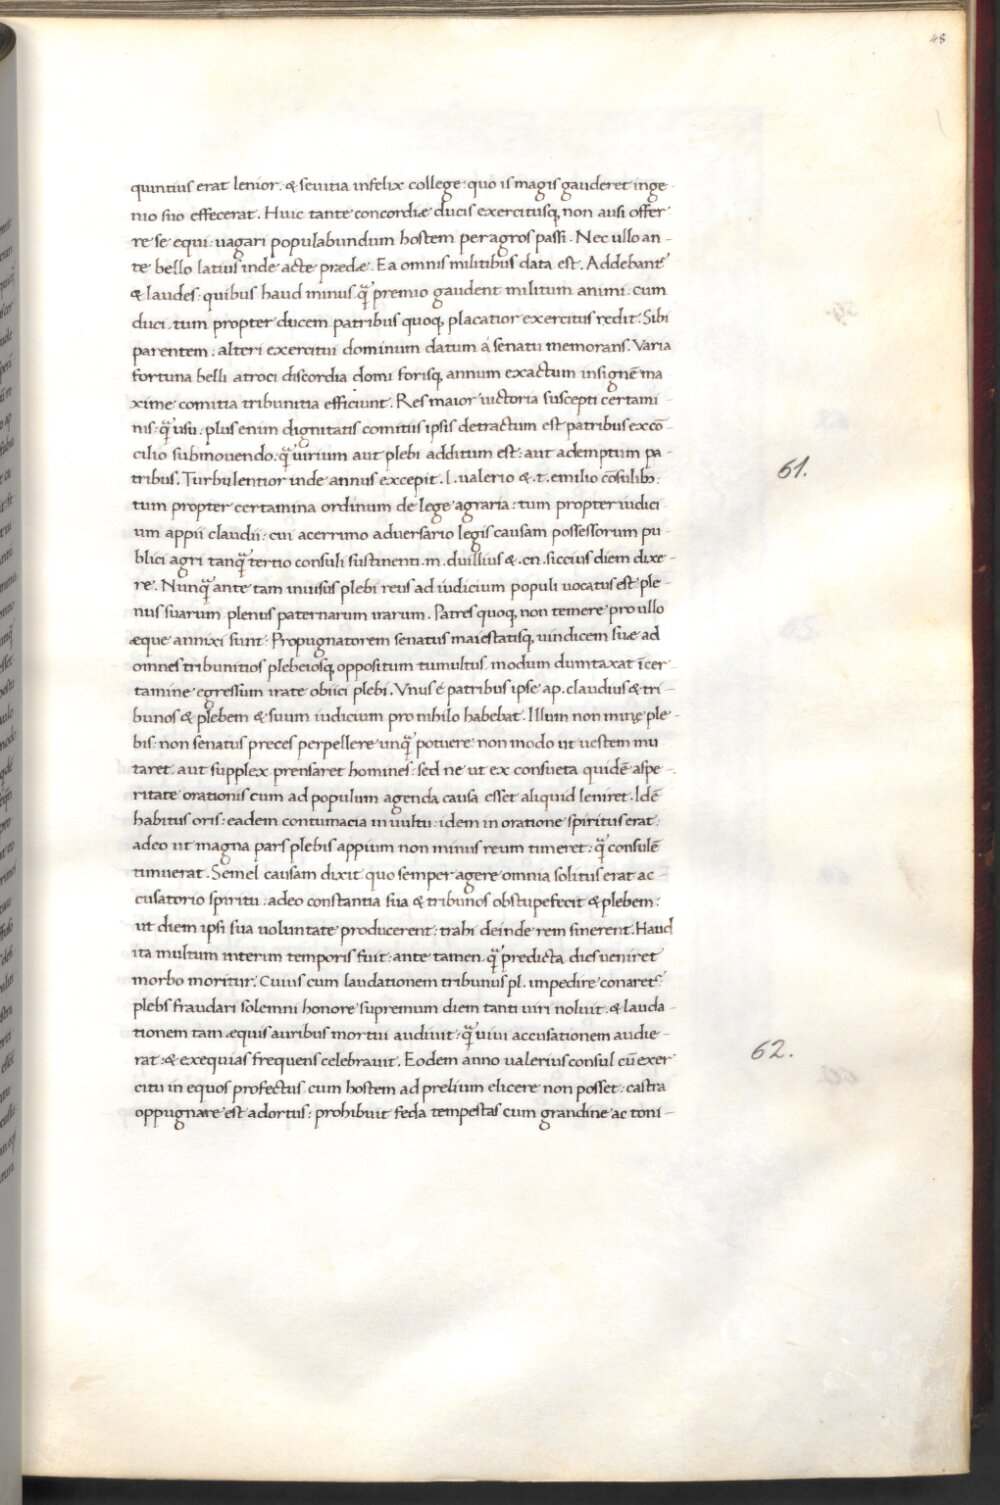 48
quintius erat lenior: & seuitia infelix college: quo is magis gauderet inge
nio suo effecerat. Huic tante concordiæ ducis exercitusq; non ausi offer
re se equi: uagari populabundum hostem per agros passi. Nec ullo an-
te bello latius inde acte prædæ. Ea omnis militibus data est. Addebant᷑
& laudes: quibus haud minus q̃ premio gaudent militum animi: cum
duci, tum propter ducem patribus quoq; placatior exercitus redit. Sibi
parentem: alteri exercitui dominum datum a senatu memorans. Varia
fortuna belli atroci discordia domi forisq; annum exactum insignē ma
xime comitia tribunitia efficiunt. Res maior uictoria suscepti certami
nis: q̃ usu: plus enim dignitatis comitiis ipsis detractum est patribus ex cō-
cilio submouendo: q̃ uirium aut plebi additum est: aut ademptum pa-
tribus. Turbulentior inde annus excepit. l. ualerio &. t. emilio cōsulib;:
61.
tum propter certamina ordinum de lege agraria: tum propter iudici
um appii claudii: cui acerrimo aduersario legis causam possessorum pu-
blici agri tanq̃ tertio consuli sustinenti. m. duillius &. cn. siccius diem dixe-
re. Nunq̃ ante tam inuisus plebi reus ad iudicium populi uocatus est ple-
nus suarum plenus paternarum irarum. Patres quoq; non temere pro ullo
æque annixi sunt: Propugnatorem senatus maiestatisq; uindicem suæ ad
omnes tribunitios plebeiosq; oppositum tumultus, modum dumtaxat ī cer
tamine egressum irate obiici plebi. Vnus é patribus ipse ap. claudius & tri-
bunos & plebem & suum iudicium pro nihilo habebat. Illum non minę ple-
bis: non senatus preces perpellere unq̃ potuere: non modo ut uestem mu
taret, aut supplex prensaret homines: sed ne ut ex consueta quidē aspe-
ritate orationis cum ad populum agenda causa esset aliquid leniret. Idē
habitus oris: eadem contumacia in uultu: idem in oratione spiritus erat:
adeo ut magna pars plebis appium non minus reum timeret: q̃ consulē
timuerat. Semel causam dixit quo semper agere omnia solitus erat ac-
cusatorio spiritu: adeo constantia sua & tribunos obstupefecit & plebem:
ut diem ipsi sua uoluntate producerent: trahi deinde rem sinerent. Haud
ita multum interim temporis fuit: ante tamen. q̃ predicta dies ueniret
morbo moritur. Cuius cum laudationem tribunus pl. impedire conaret᷑
plebs fraudari solemni honore supremum diem tanti uiri noluit: & lauda-
tionem tam æquis auribus mortui audiuit: q̃ uiui accusationem audie-
rat: & exequias frequens celebrauit. Eodem anno ualerius consul cū exer
62.
citu in equos profectus cum hostem ad prelium elicere non posset: castra
oppugnare est adortus: prohibuit feda tempestas cum grandine ac toni-